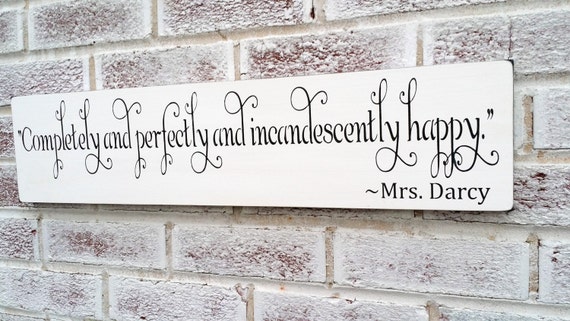 "Completely and perfectly and incandescently happy."
~Mrs. Darcy